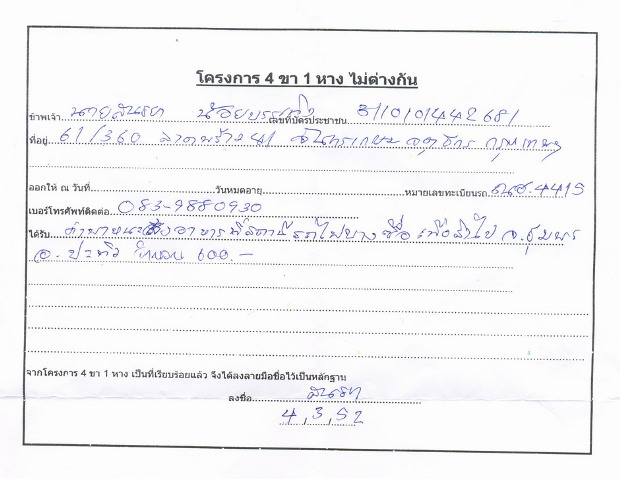 โครงการ 4 ขา 1 หาง ไม่ต่างกัน
ข้าพเจ้า นาย น้อย เลขที่บัตรประชาชน
ที่อยู่ 61/360 ลาดพร้าว 41 จันทรเกษม จตุจักร กรุงเทพฯ
ออกให้ ณ วันที่ วันหมดอายุ หมายเลขทะเบียนรถ 4415
เบอร์โทรศัพท์ติดต่อ 083-9880930
ได้รับ ค่าพาหนะ อาหาร สถานีรถไฟบางซื่อ เพื่อ ไป จ.ชุมพร
อ. ปะทิว 600.-
จากโครงการ 4 ขา 1 หาง เป็นที่เรียบร้อยแล้ว จึงได้ลงลายมือชื่อไว้เป็นหลักฐาน
ลงชื่อ
4,3,52